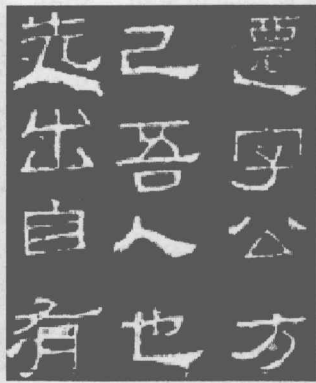 遷字公方
己吾人也
先出自有